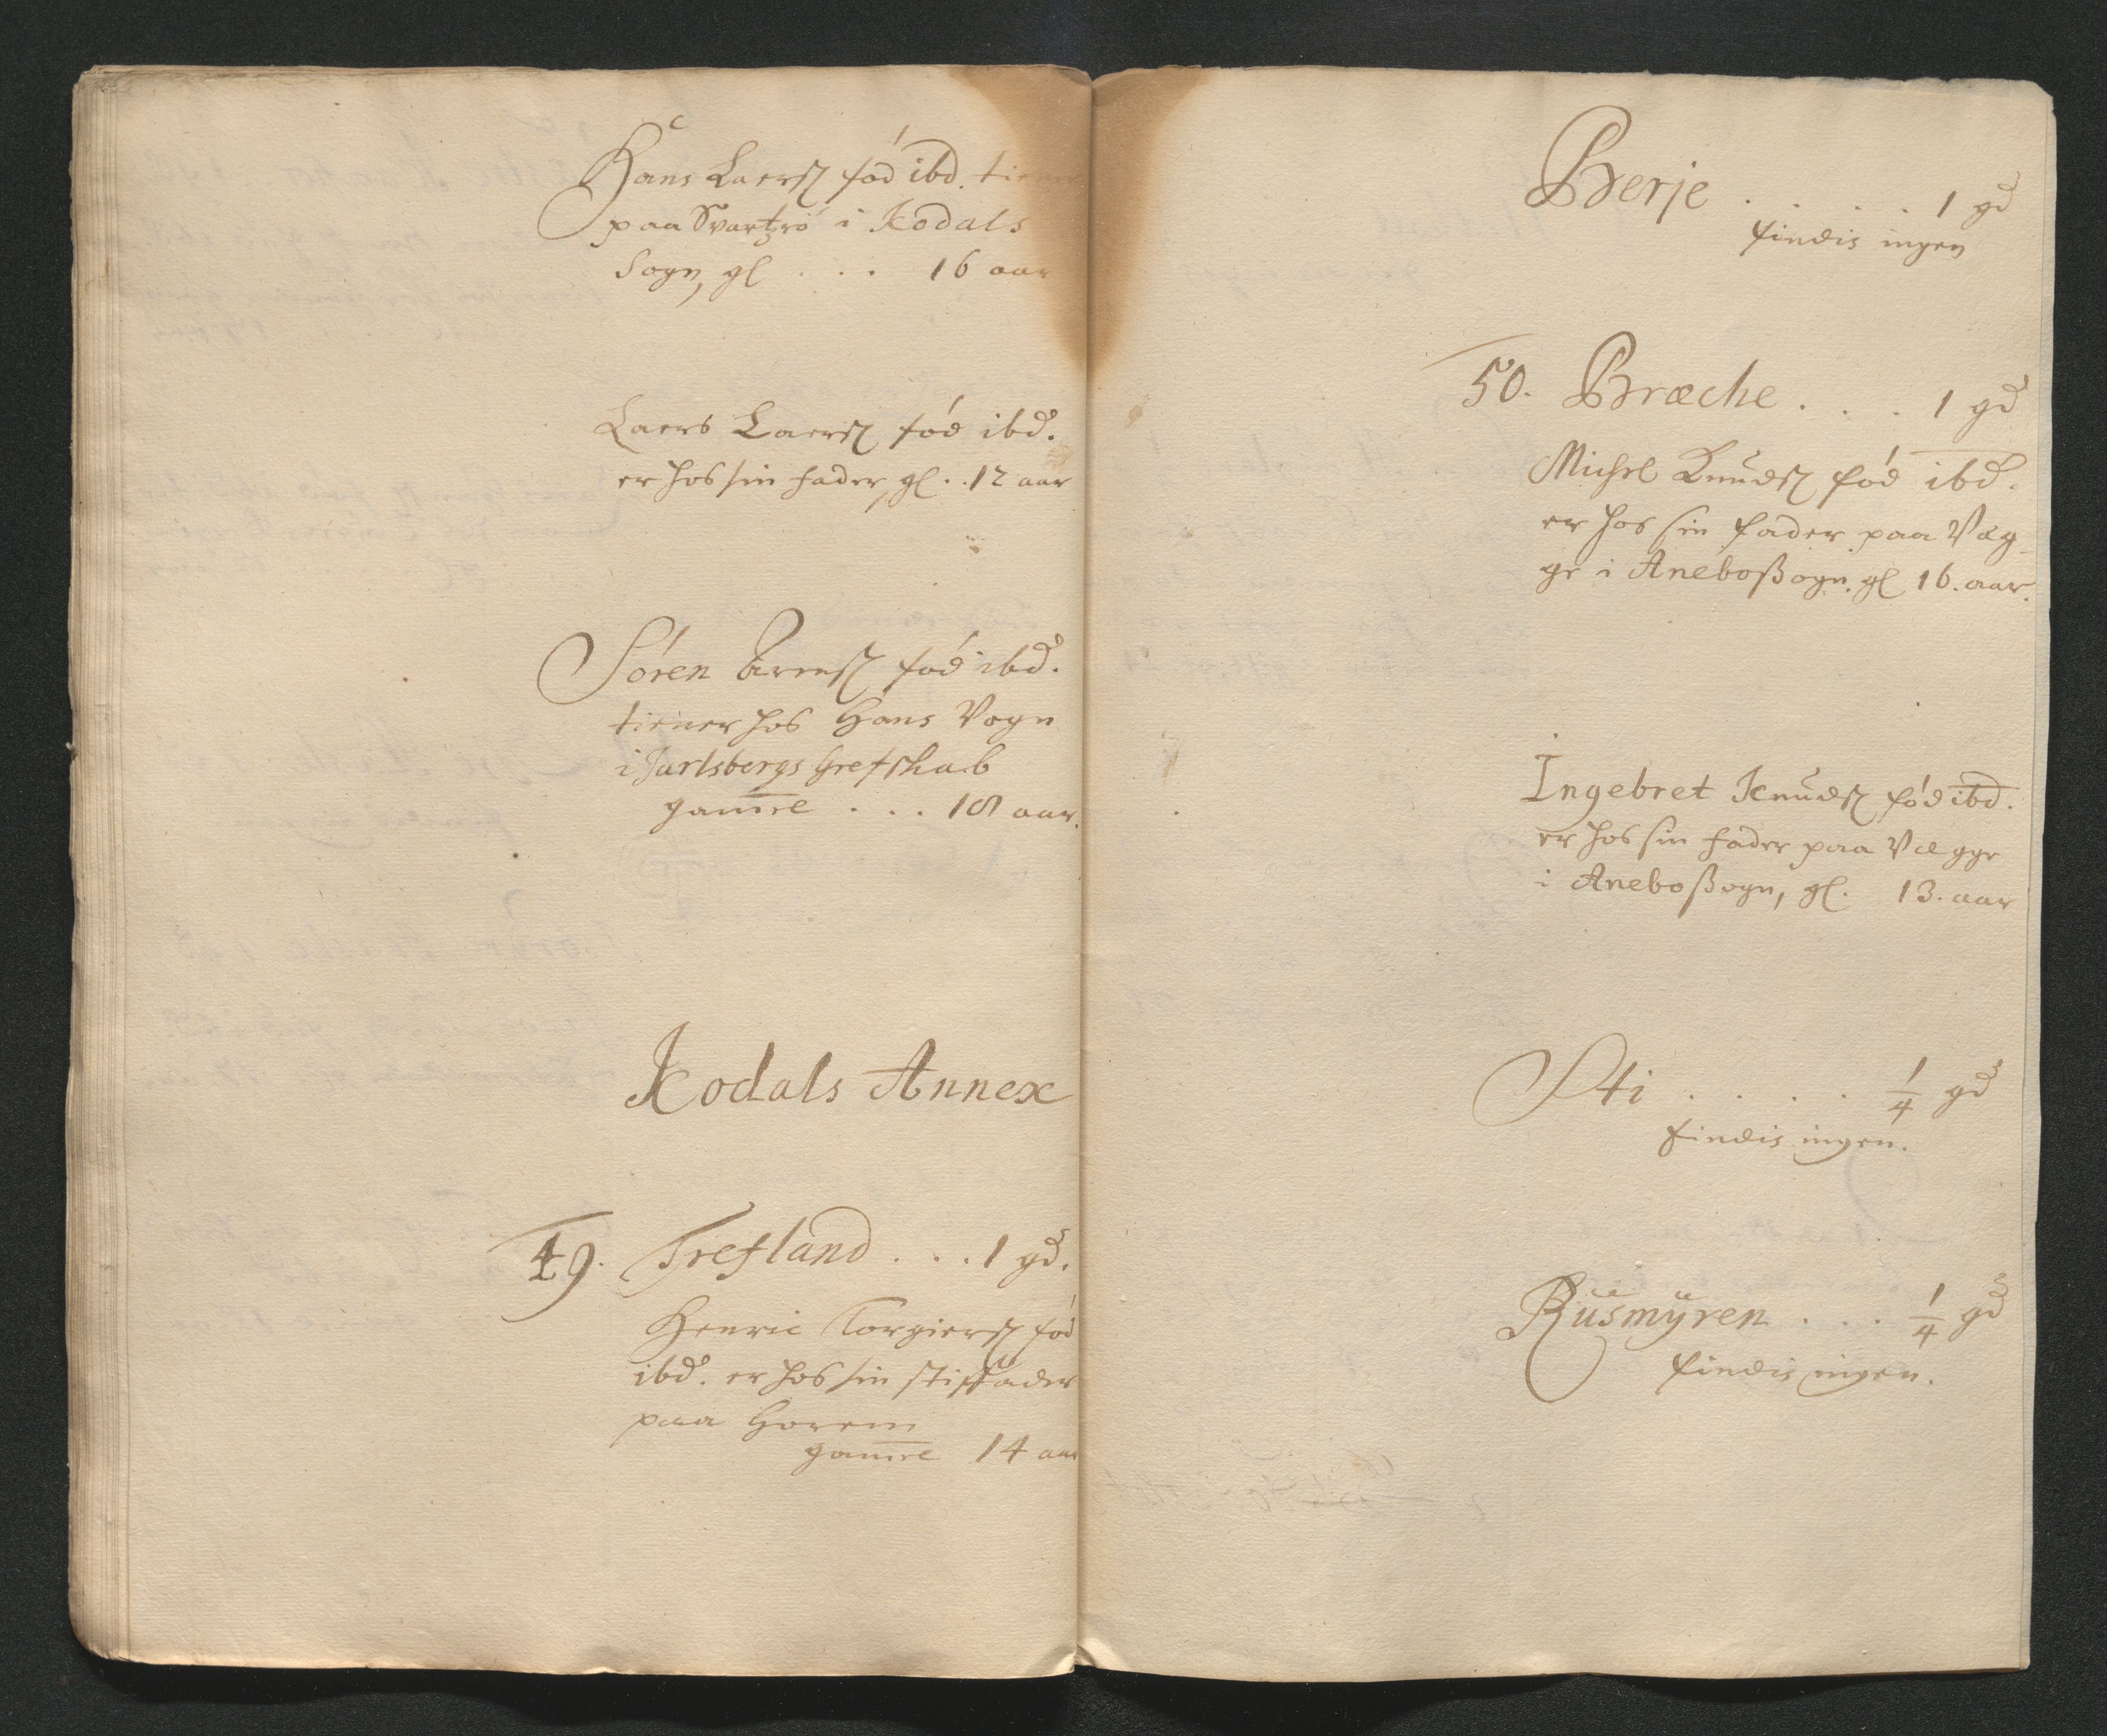 Hans Laersß fød ibd. tiener
paa Svartzrö i Kodals
Sogn, gl . . . 16 aar
Laers Laersß fød ibd.
er hos sin fader, gl . . 12 aar
Søren Arensß fød ibd.
tiener hos Hans Vogn
i Jarlsbergs Grefskab
gamel . . . 18 aar.
Kodals Annex
49. Trefland . . . 1 gd.
Henric Torgiersß fød
ibd. er hos sin stiffader
paa Horem
gamel 14 aar
Berje . . . . 1 gd
findis ingen
50. Bræche . . . 1 gd
Michel Knudsß fød ibd.
er hos sin fader paa Væg-
ge i Aneboßogn. gl 16. aar.
Ingebret Knudsß fød ibd.
er hos sin fader paa Vægge
i Aneboßogn, gl. 13. aar
Sti . . . . 1/4 gd
findis ingen.
Rusmyren . . . 1/4 gd
findis ingen.